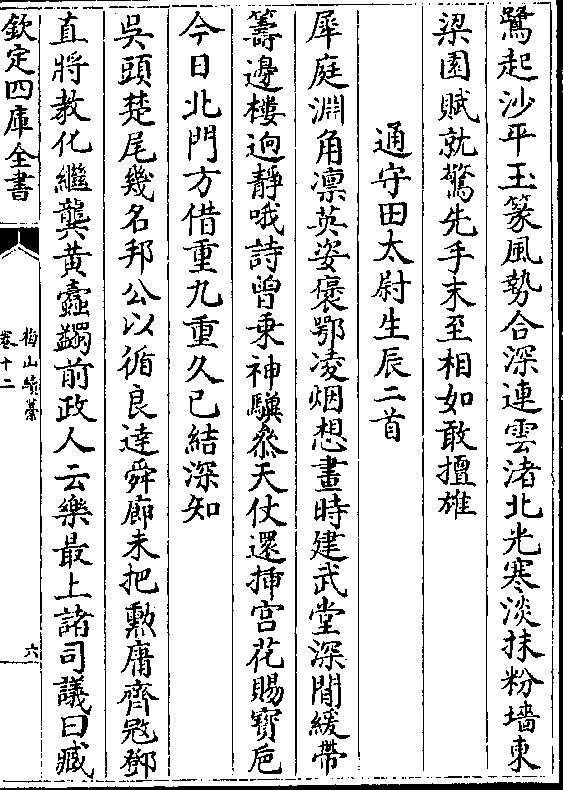 鷺起沙平玉篆風勢合深連雲渚北光寒淡抹粉墻東
梁園賦就驚先手末至相如敢擅雄
通守田太尉生辰二首
犀庭淵角凛英姿褒鄂凌烟想畫時建武堂深閒緩帶
籌邊樓迥靜哦詩曾乗神驥叅天仗還揷宫花賜寶巵
今日北門方借重九重久已結深知
吳頭楚尾幾名邦公以循良達舜廊未把勲庸齊冦鄧
直將教化繼龔黄蠧蠲前政人云樂最上諸司議曰臧
欽定四庫全書
梅山續藁
卷十二
六